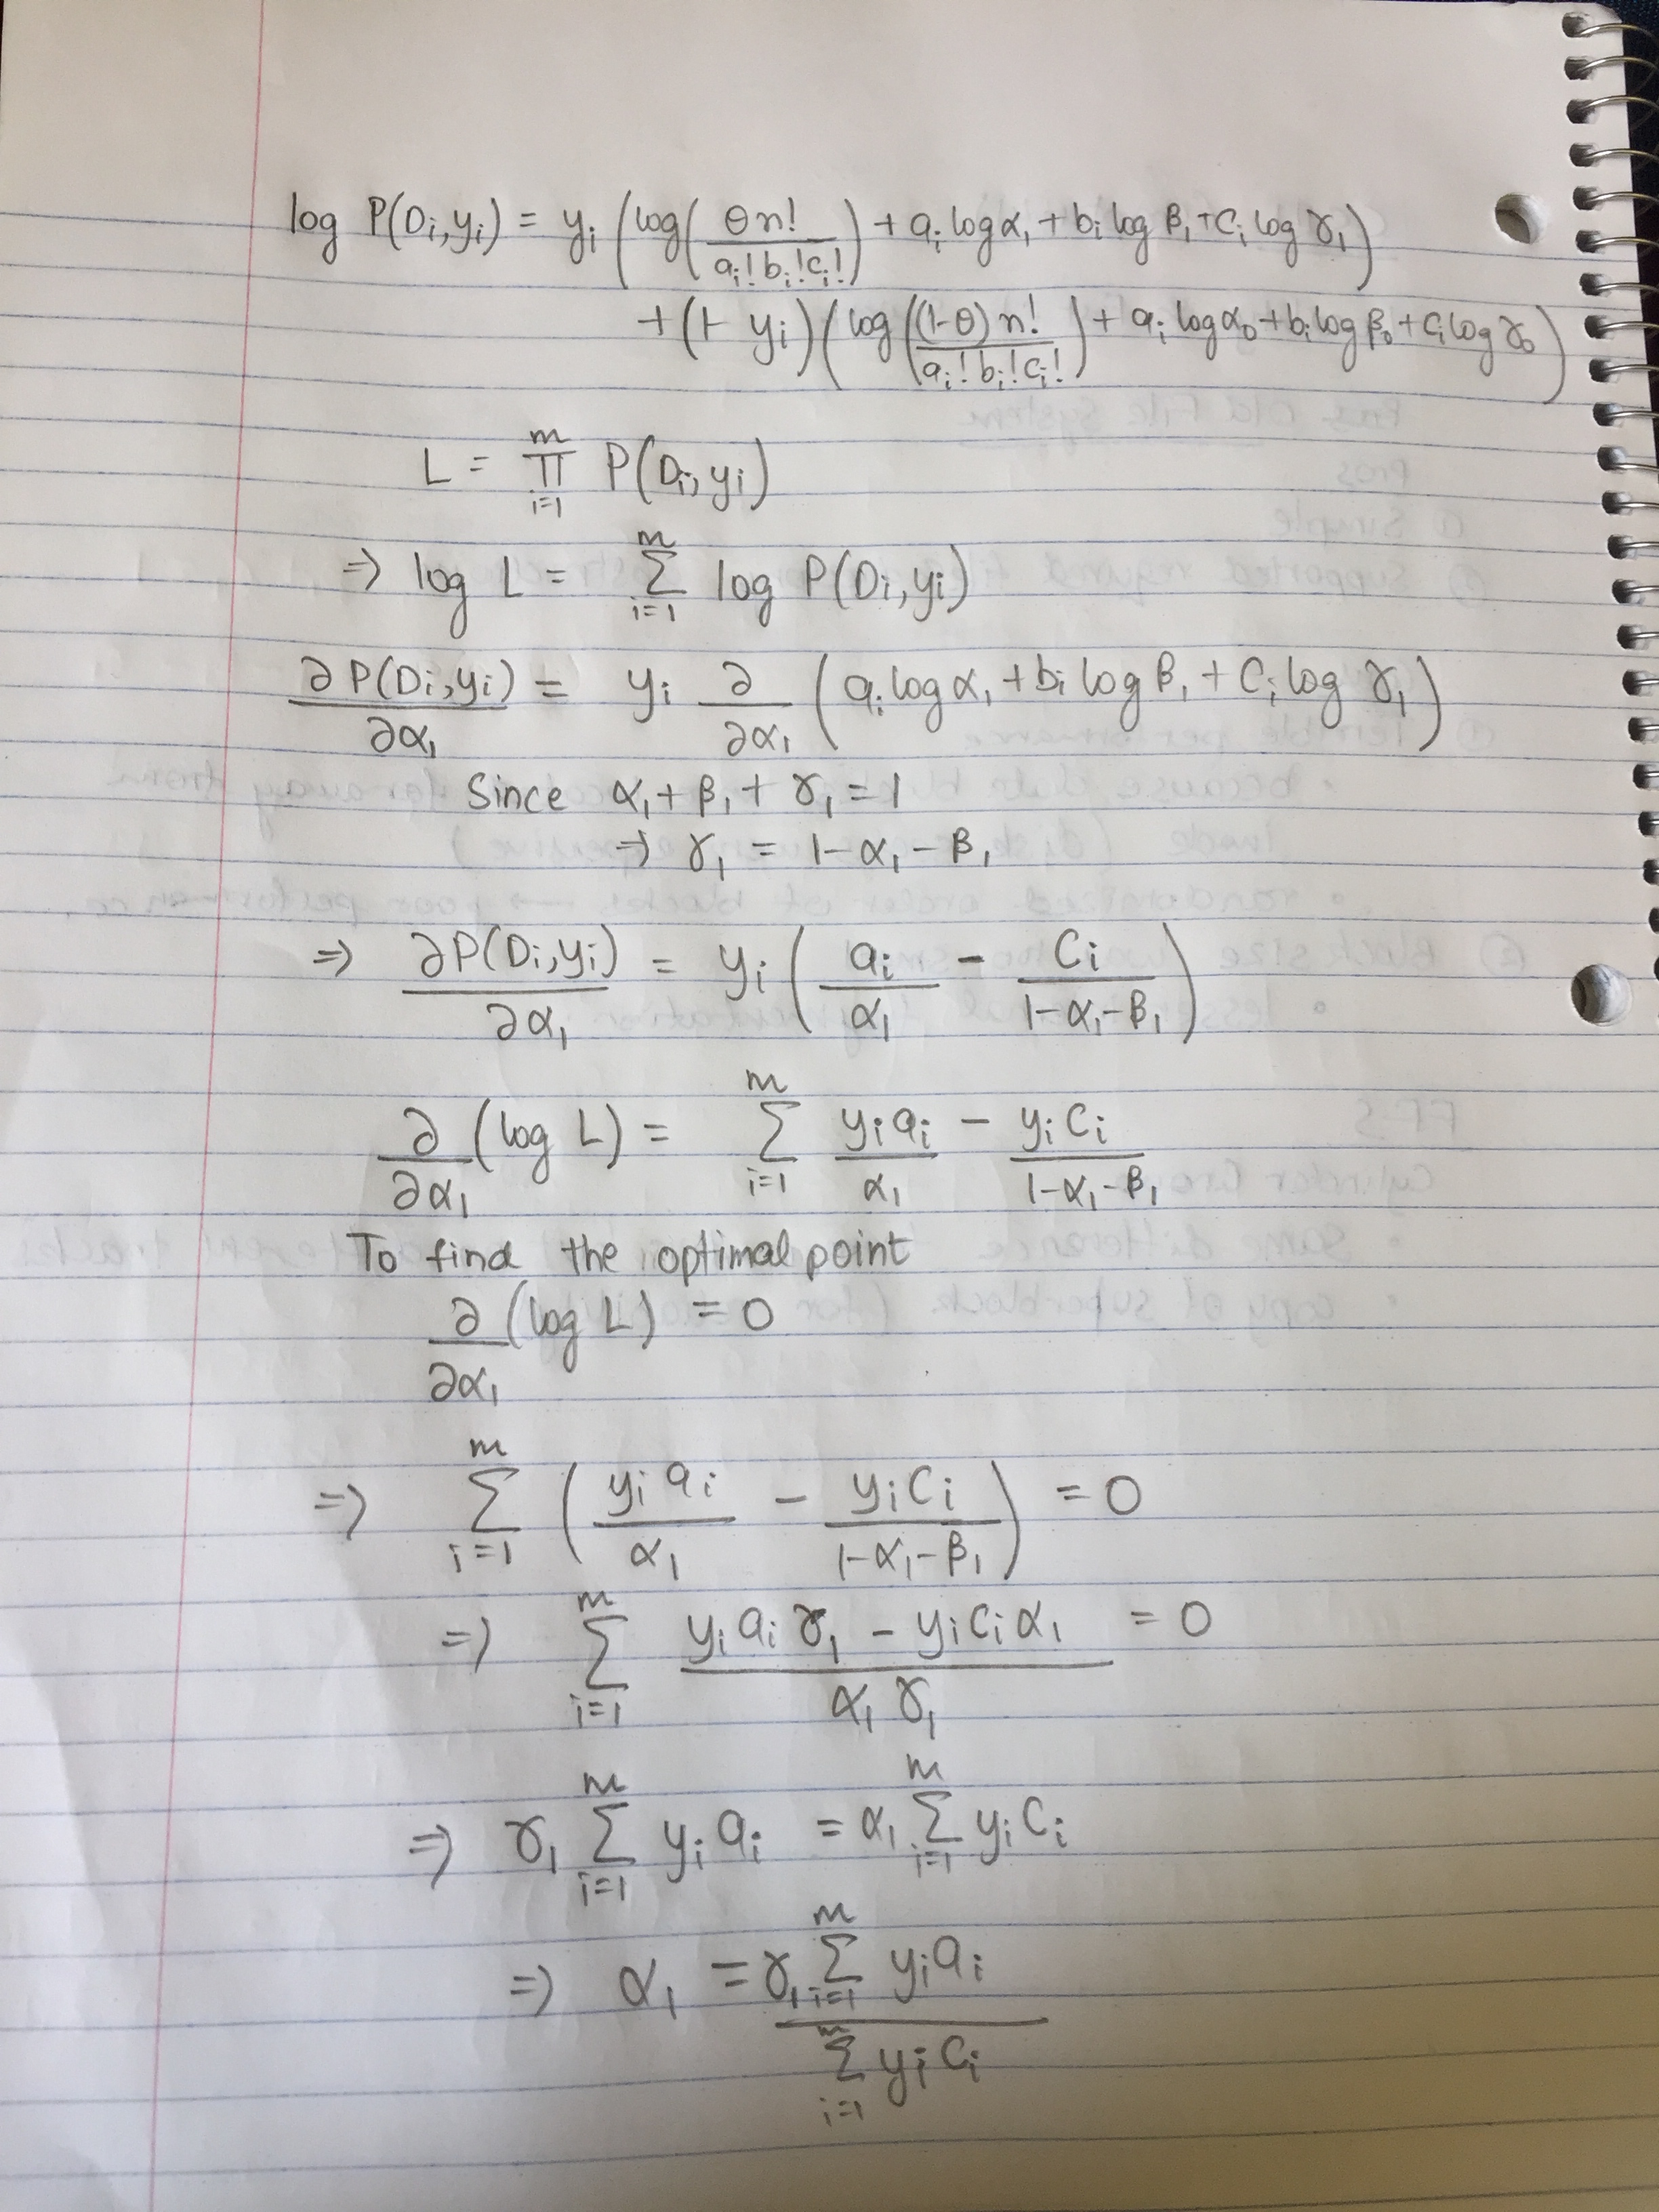 log P(Di,yi) = yi (log(θn!/ai!bi!ci!) + ai log α1 + bi log β1 + ci log γ1)
+ (1- yi)(log((1-θ)n!/ai!bi!ci!) + ai log α0 + bi log β0 + ci log γ0)
L = m Π i=1 P(Di,yi)
⇒ log L = m Σ i=1 log P(Di,yi)
∂P(Di,yi)/∂α1 = yi ∂/∂α1 (ai log α1 + bi log β1 + ci log γ1)
Since α1 + β1 + γ1 = 1
⇒ γ1 = 1-α1-β1
⇒ ∂P(Di,yi)/∂α1 = yi (ai/α1 - ci/1-α1-β1)
∂/∂α1 (log L) = m Σ i=1 yiai/α1 - yici/1-α1-β1
To find the optimal point
∂/∂α1 (log L) = 0
⇒ m Σ i=1 (yiai/α1 - yici/1-α1-β1) = 0
⇒ m Σ i=1 yiaiγ1 - yiciα1/α1γ1 = 0
⇒ γ1 m Σ i=1 yiai = α1 m Σ i=1 yici
⇒ α1 = γ1 m Σ i=1 yiai / m Σ i=1 yici